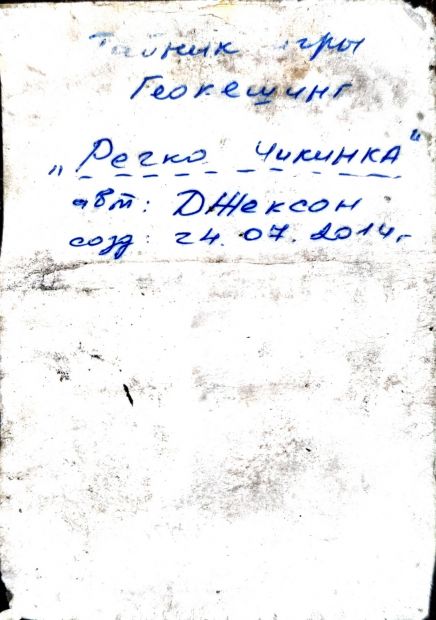 Тайник игры
Геокешинг
„Речко Чикинка"
авт: Джексон
созд: 24.07.2014г